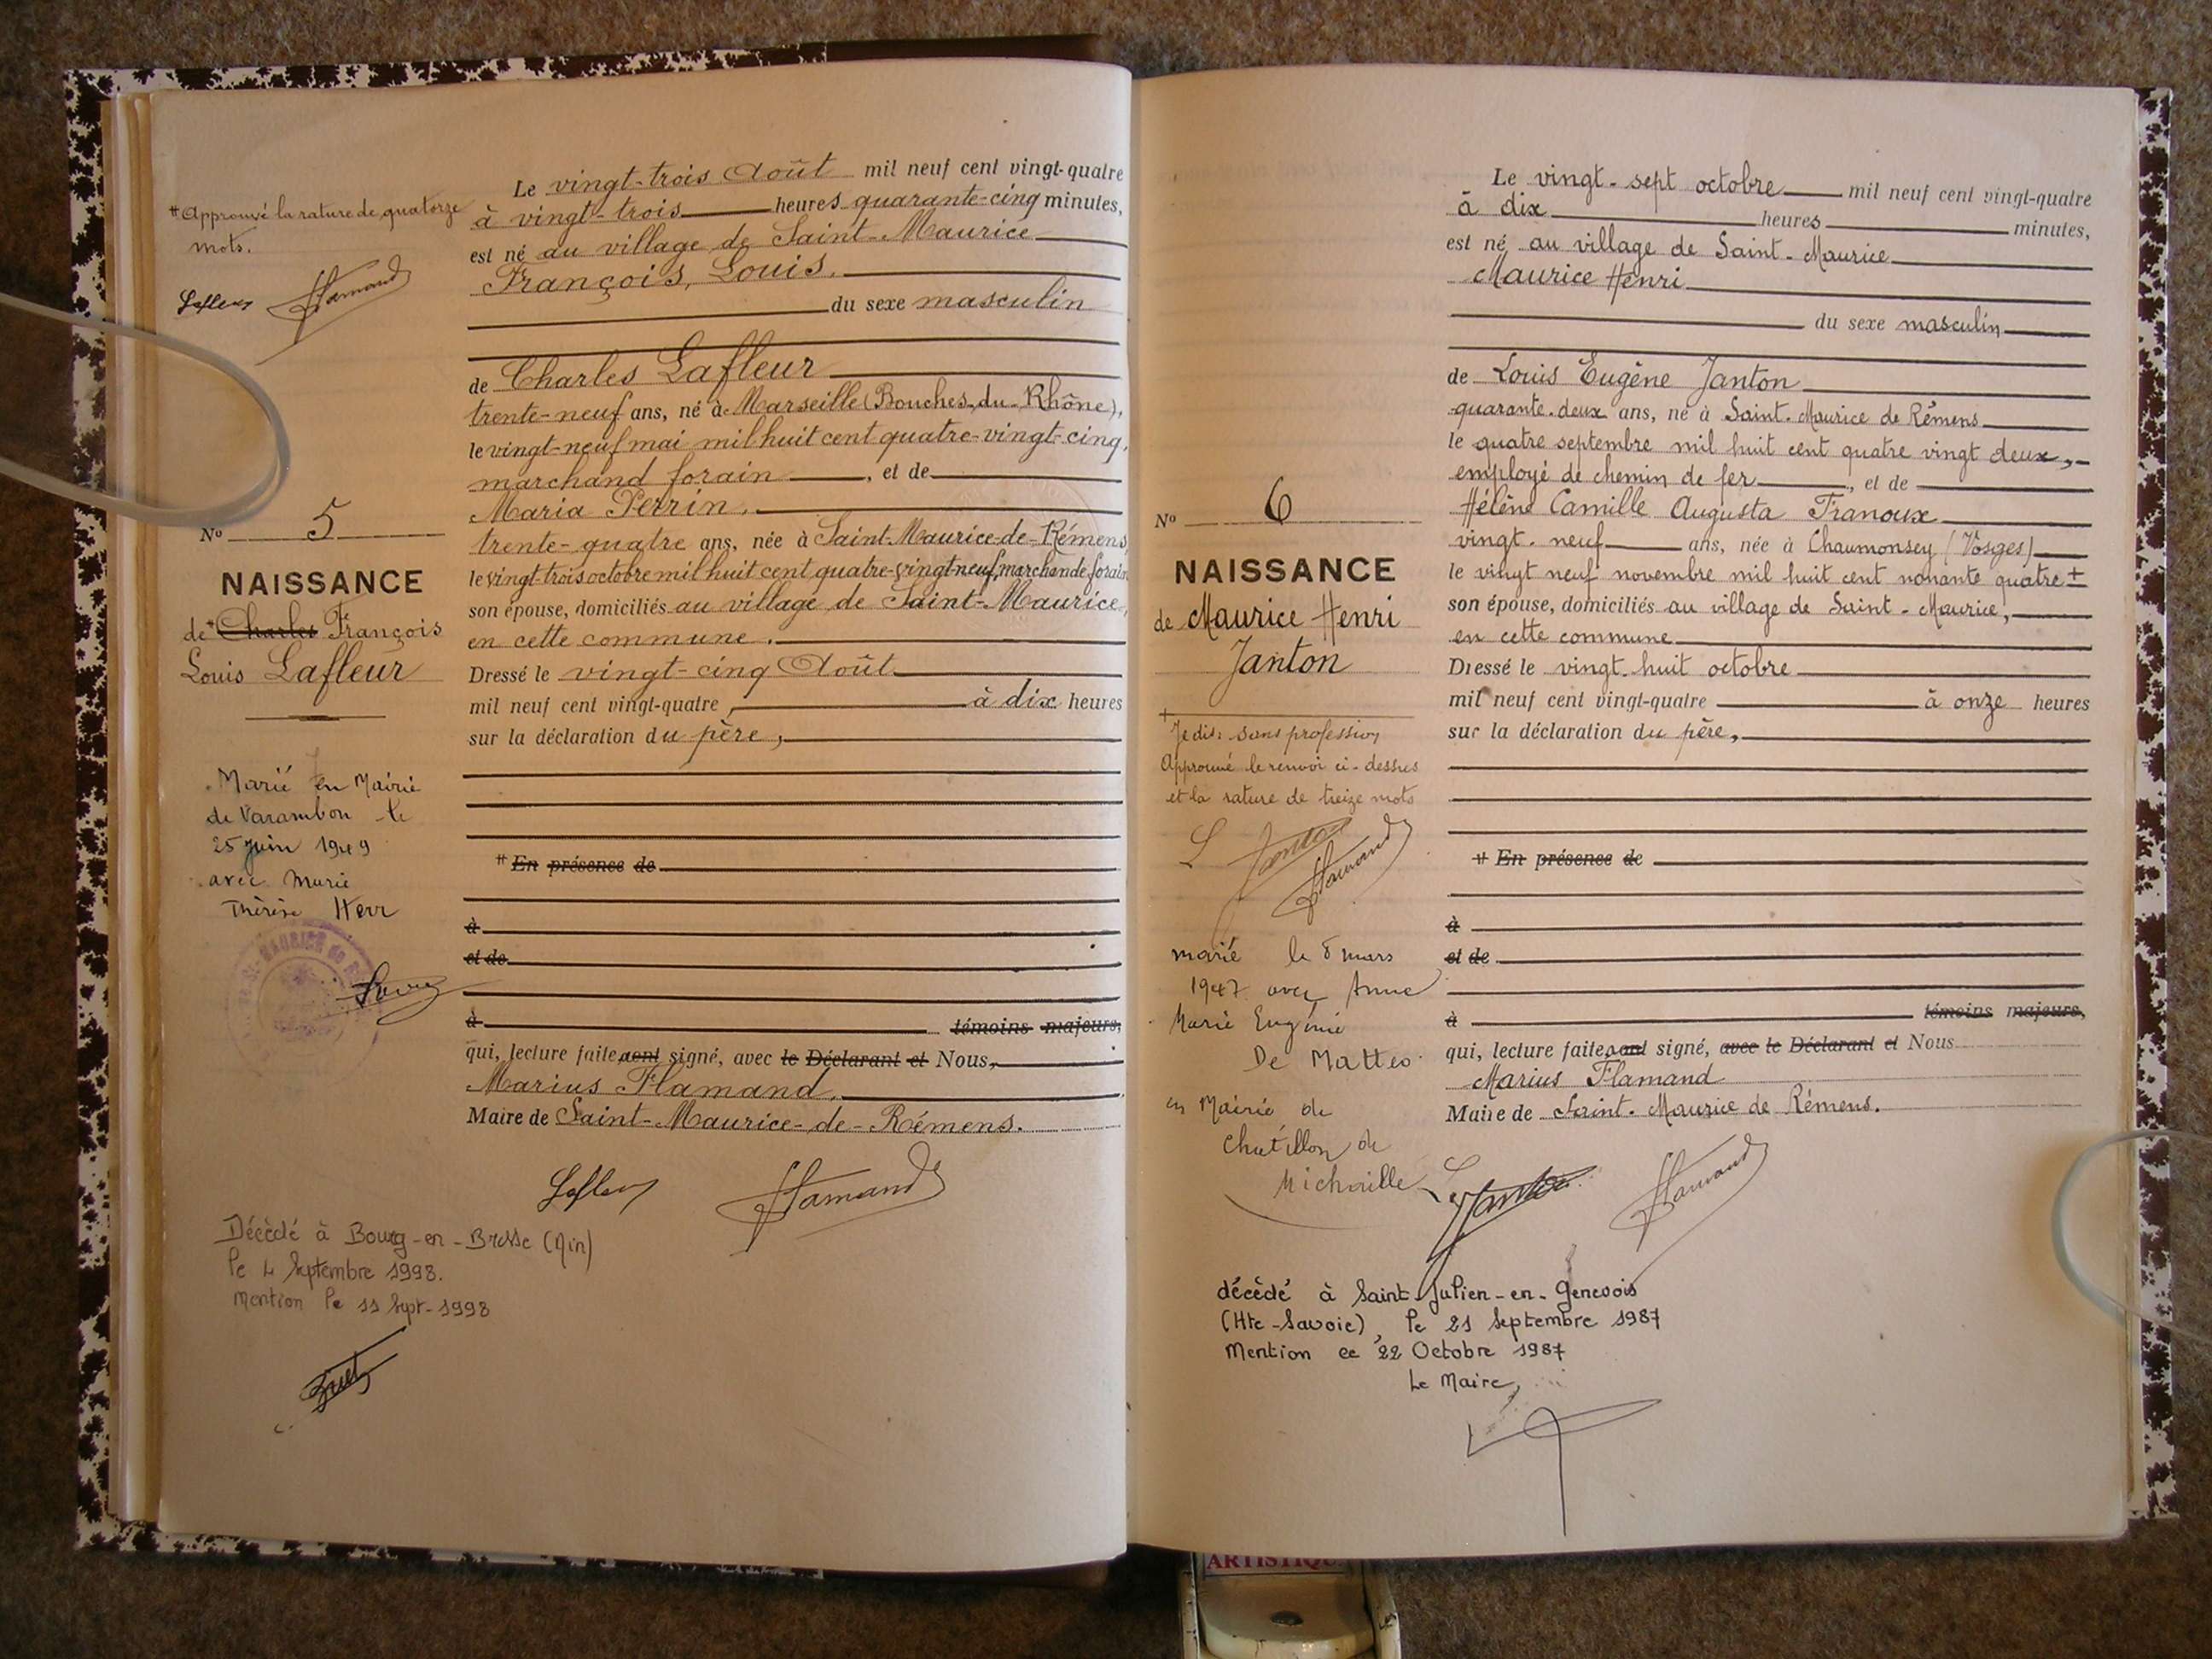 * Approuvé la rature de quatorze
mots.
Lafleur Flamand
No 5
NAISSANCE
de * Charles François
Louis Lafleur
Marié en Mairie
de Varambon le
25 juin 1949
avec Marie
Thérèse Herr
Le vingt-trois Août mil neuf cent vingt-quatre
à vingt-trois heures quarante-cinq minutes,
est né au village de Saint-Maurice
François, Louis.
du sexe masculin
de Charles Lafleur
trente-neuf ans, né à Marseille (Bouches-du-Rhône),
le vingt-neuf mai mil huit cent quatre-vingt-cinq,
marchand forain, et de
Maria Perrin,
trente-quatre ans, née à Saint-Maurice-de-Rémens,
le vingt-trois octobre mil huit cent quatre-vingt-neuf, marchande foraine
son épouse, domiciliés au village de Saint-Maurice,
en cette commune.
Dressé le vingt-cinq Août
mil neuf cent vingt-quatre, à dix heures
sur la déclaration du père,
* En présence de
à
et de
à témoins majeurs,
qui, lecture faite, ont signé, avec le Déclarant et Nous,
Marius Flamand,
Maire de Saint-Maurice-de-Rémens.
Lafleur Flamand
Décédé à Bourg-en-Bresse (Ain)
le 4 Septembre 1998.
Mention le 11 Sept-1998
No 6
NAISSANCE
de Maurice Henri
Janton
+
Je dis: sans profession
Approuvé le renvoi ci-dessus
et la rature de treize mots
L Janton
Flamand
marié le 8 mars
1947 avec Anne
Marie Eugénie
De Matteo
en Mairie de
Chatillon de
Michaille
Le vingt-sept octobre mil neuf cent vingt-quatre
à dix heures minutes,
est né au village de Saint-Maurice
Maurice Henri
du sexe masculin
de Louis Eugène Janton
quarante-deux ans, né à Saint-Maurice de Rémens
le quatre septembre mil huit cent quatre vingt deux,
employé de chemin de fer, et de
Hélène Camille Augusta Franoux
vingt-neuf ans, née à Chaumonsey (Vosges)
le vingt neuf novembre mil huit cent nonante quatre +
son épouse, domiciliés au village de Saint-Maurice,
en cette commune
Dressé le vingt-huit octobre
mil neuf cent vingt-quatre à onze heures
sur la déclaration du père,
* En présence de
à
et de
à témoins majeurs,
qui, lecture faite, ont signé, avec le Déclarant et Nous
Marius Flamand
Maire de Saint-Maurice de Rémens.
L Janton Flamand
décédé à Saint-Julien-en-Genevois
(Hte-Savoie), le 21 Septembre 1987
Mention ce 22 Octobre 1987
Le Maire,
ARTISTIQUE